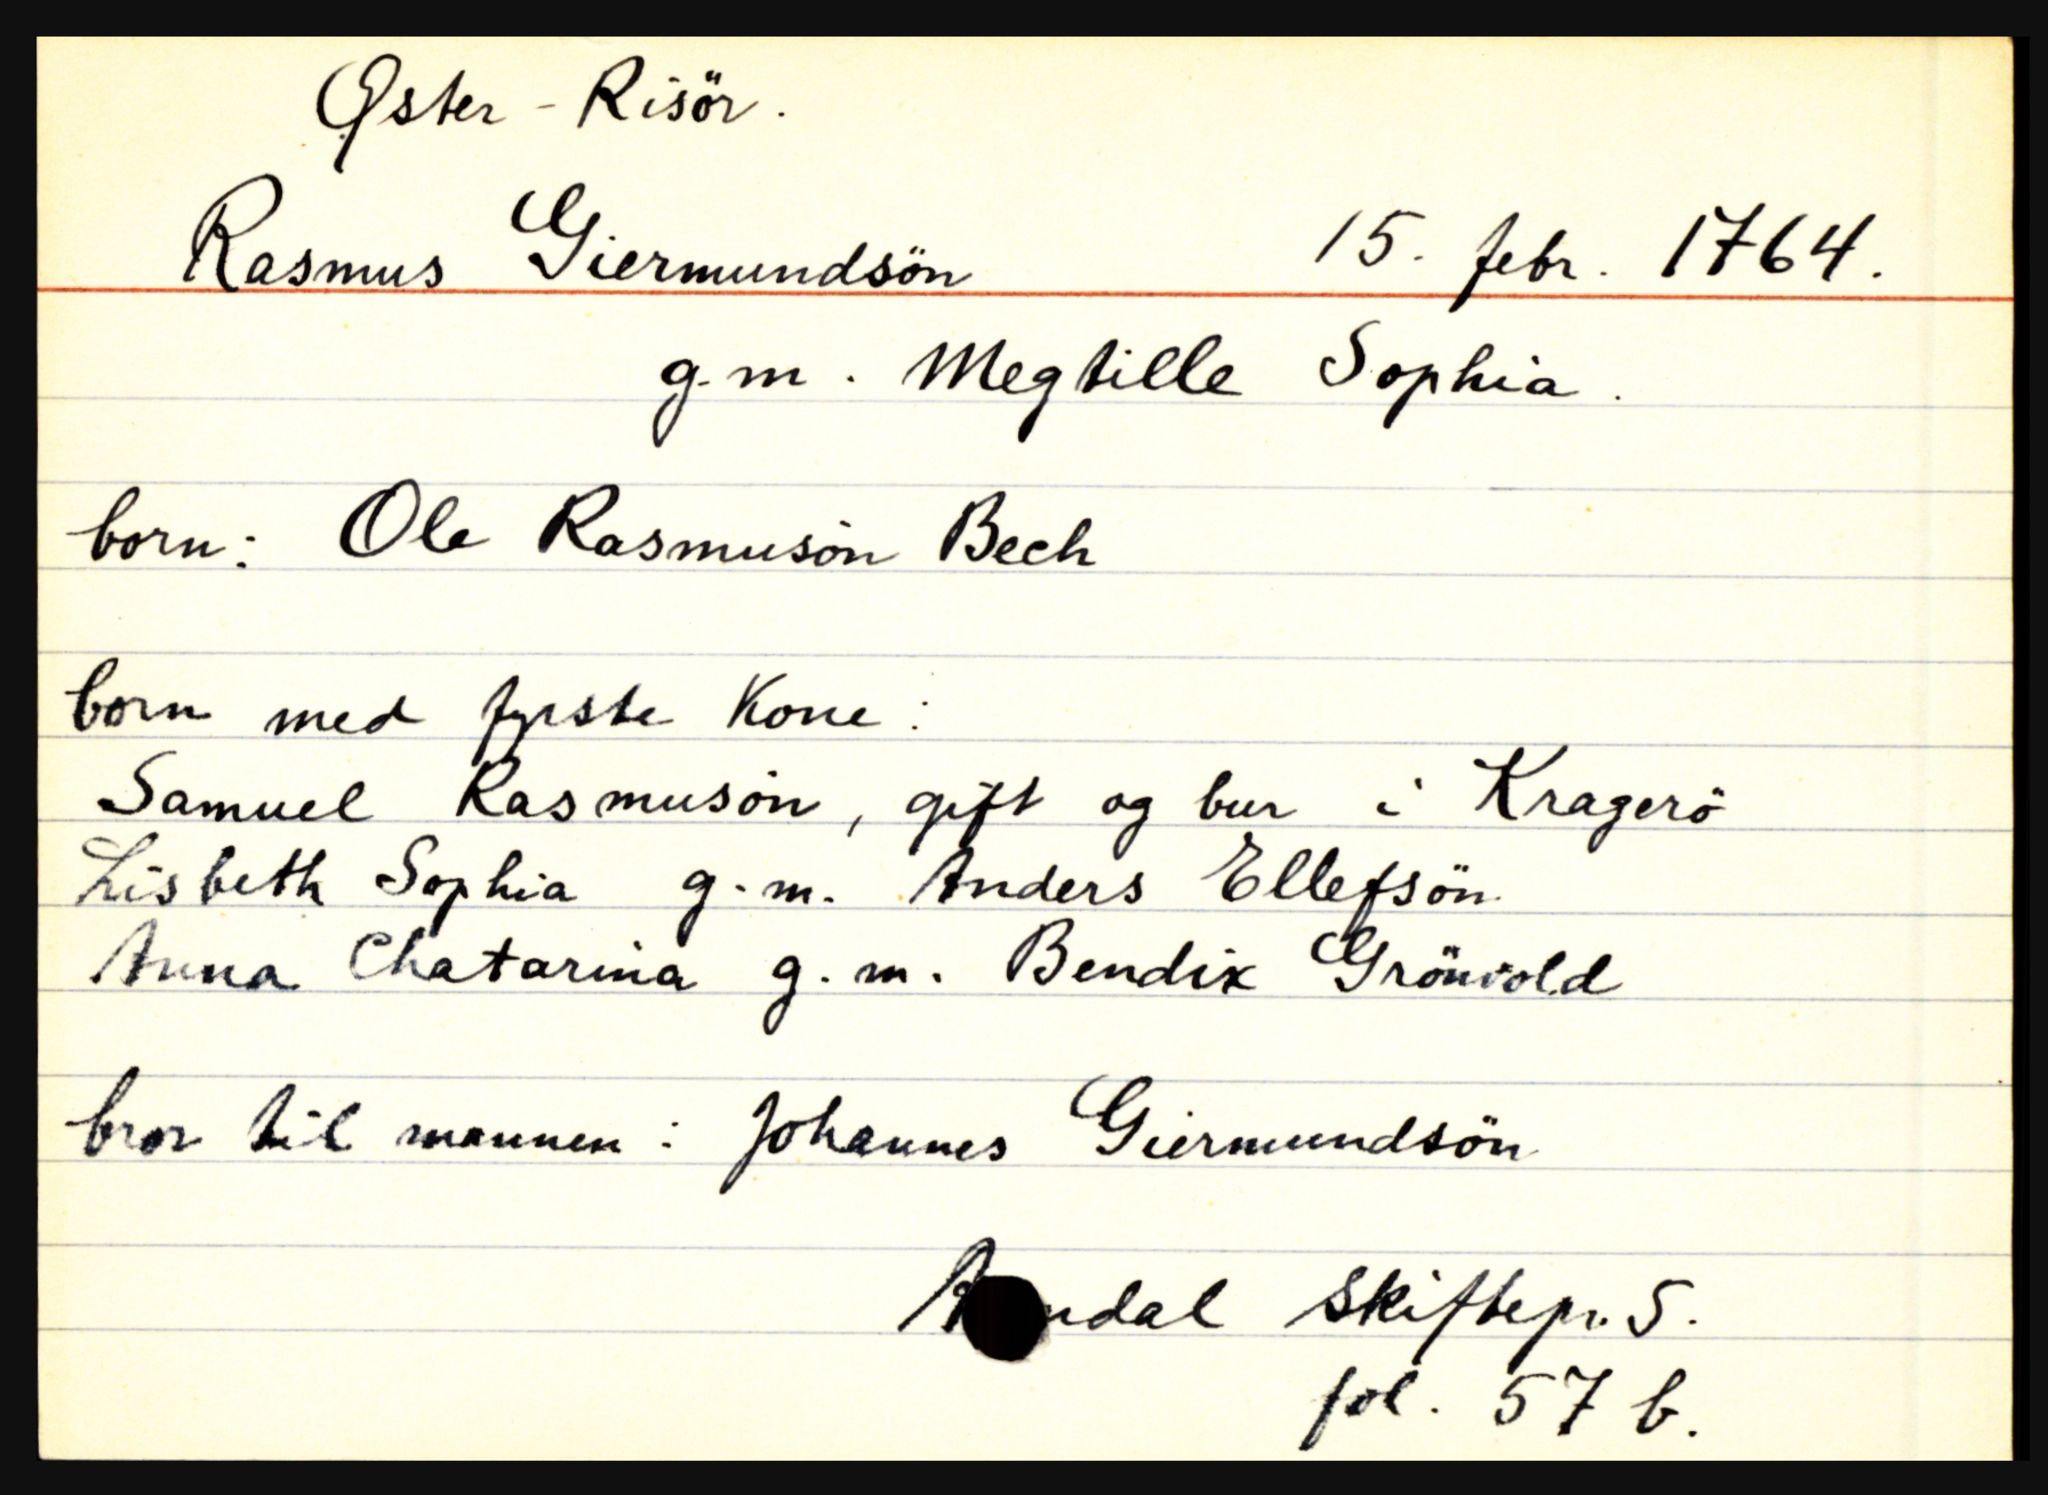 Øster - Risör.
Rasmus Giermundsön 15. febr. 1764.
g.m. Megtille Sophia.
born: Ole Rasmusön Bech
born med fyrste Kone:
Samuel Rasmusön, gift og bur i Kragerö
Lisbeth Sophia g.m. Anders Ellefsön
Anna Chatarina g.m. Bendix Grönvold
bror til mannen: Johannes Giermundsön
skiftepr. 5.
fol. 57 b.